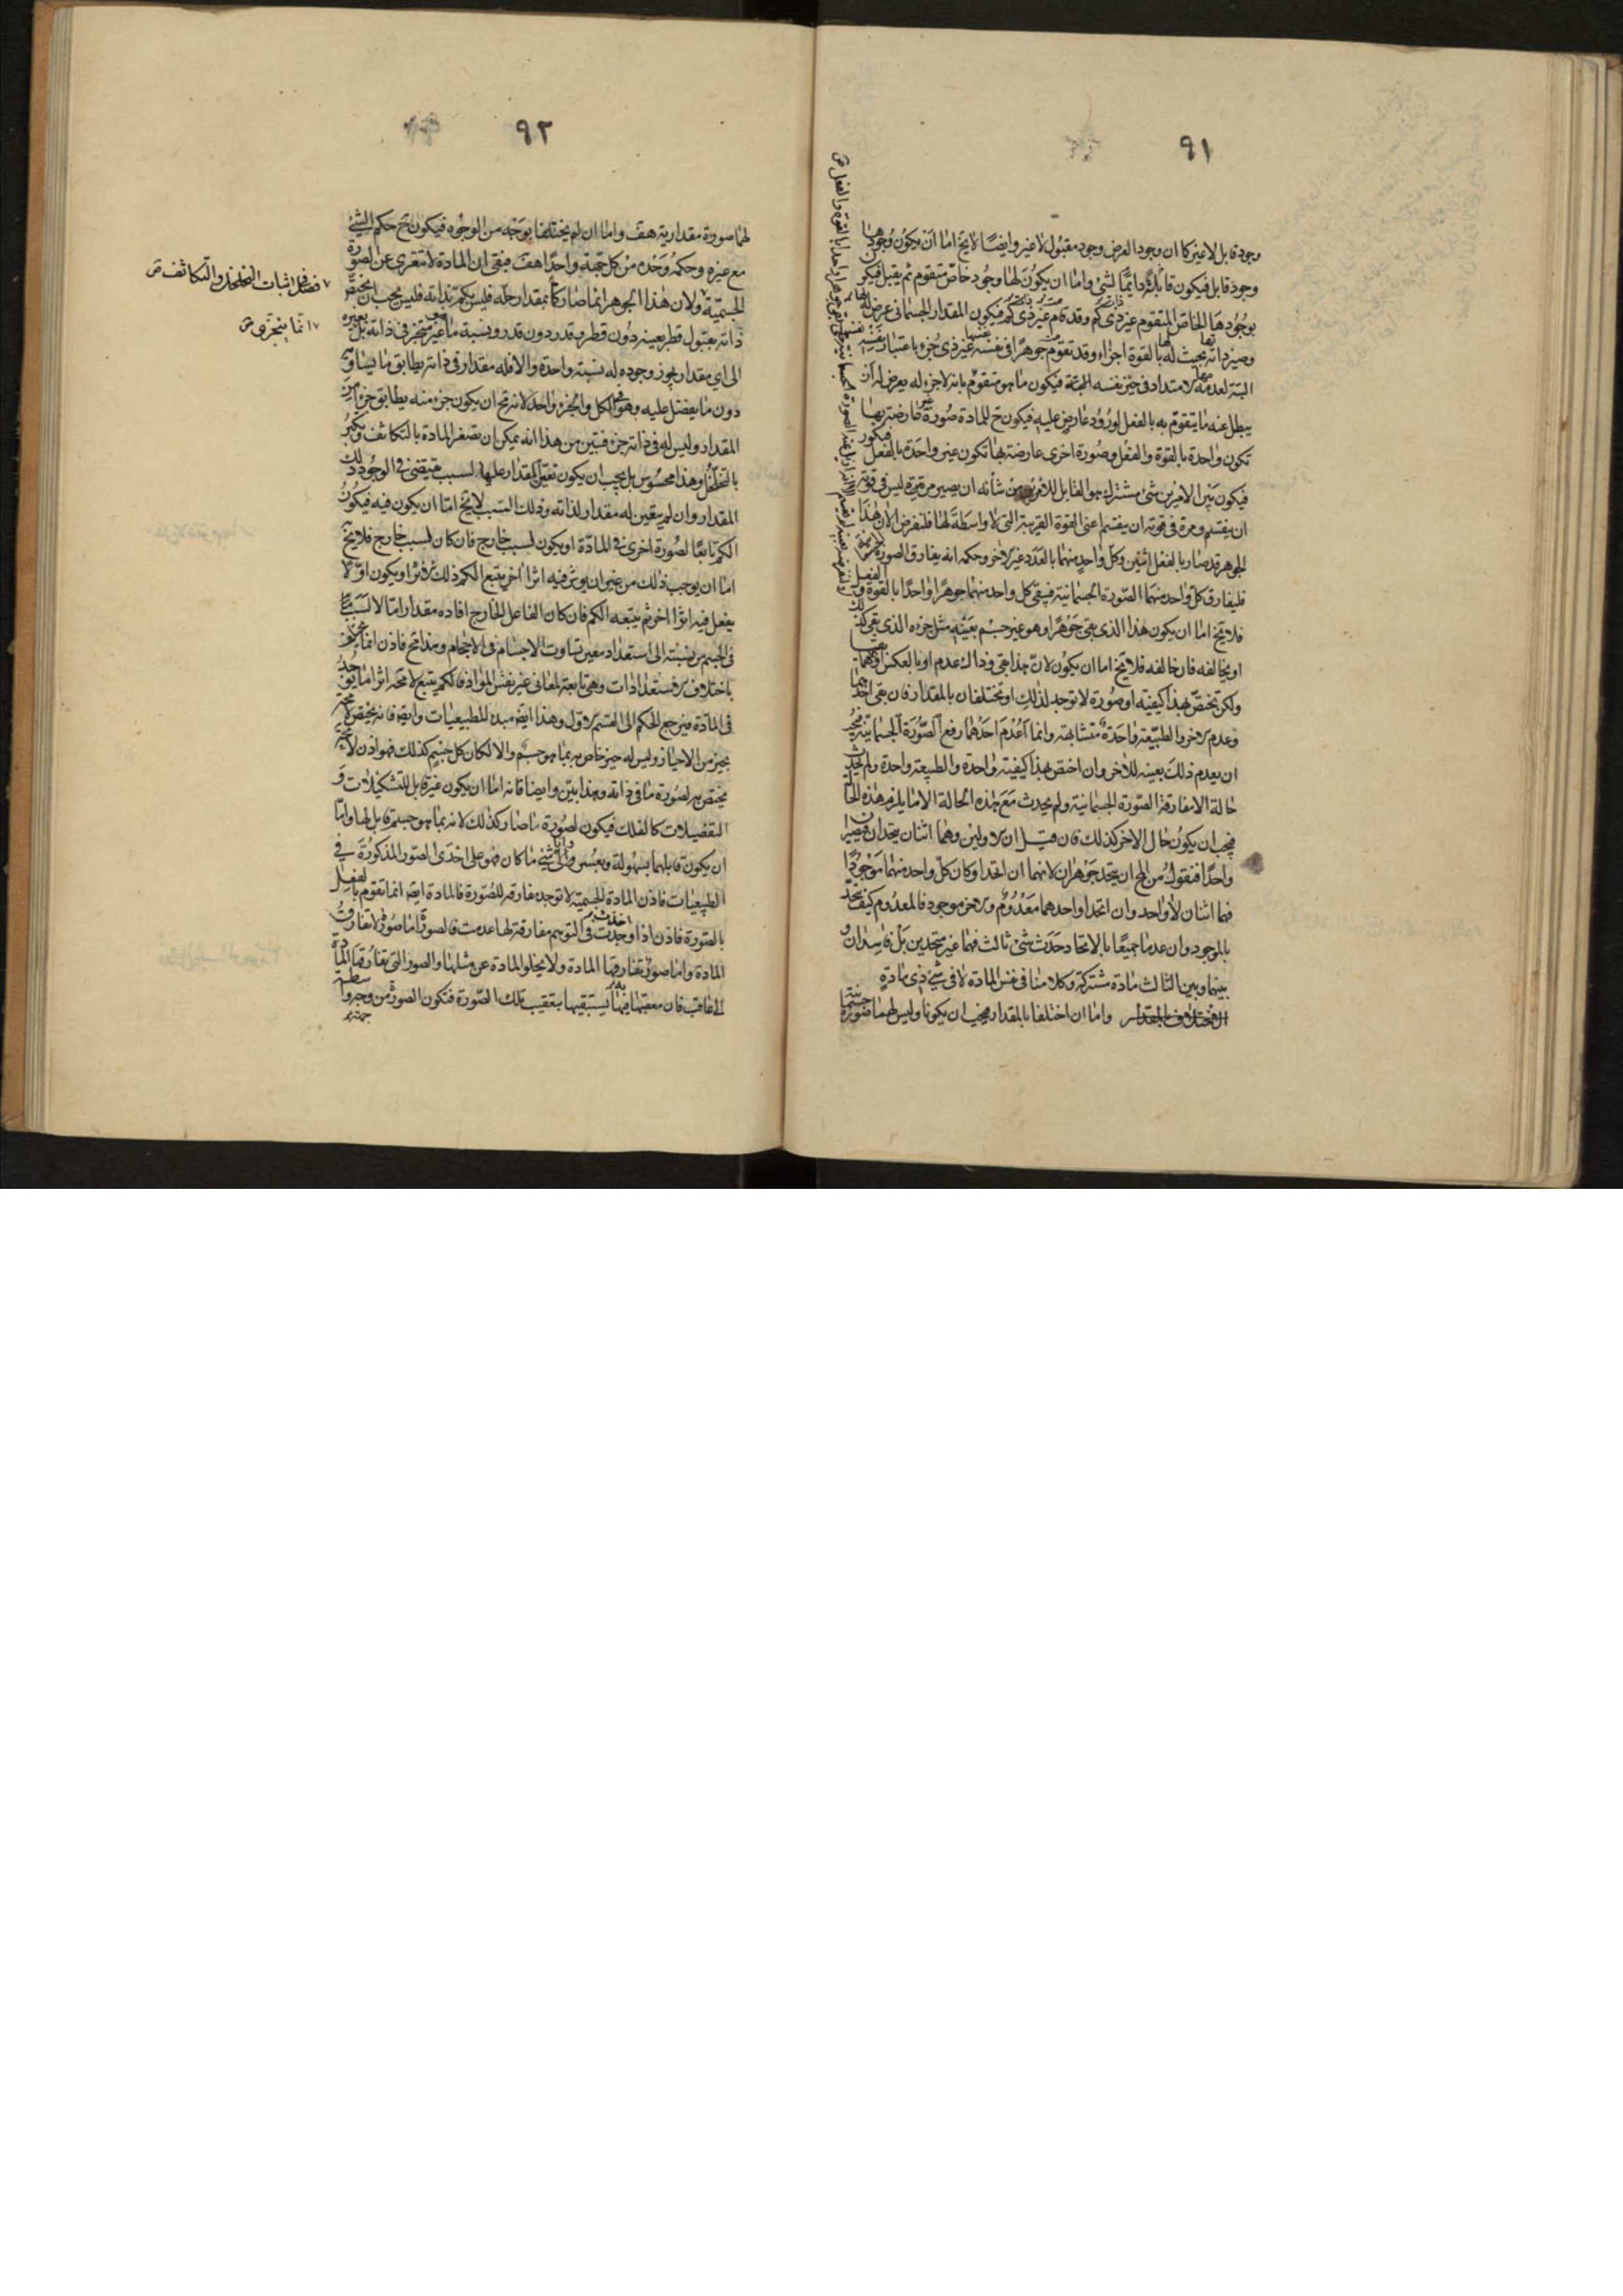 ٩١
وجود قابل لا غير كما ان وجود العرض وجود مقبول لا غير وايضا لا يخ اما ان يكون وجودها
وجود قابل فيكون قابلة دائما لشئ واما ان يكون لها وجود خاص متقوم ثم يقبل فيكو
بوجودها الخاص المتقوم غير ذى كم وقد قام غير ذى كم فيكون المقدار الجسمانى عرض له
وصير ذاته بحيث له بالقوة اجزاء وقد تقوم جوهرا فى نفسه غير ذى جزء باعتبار نفسه
البتة لعدمه الامتداد فى حيز نفسه فيكون ما هو متقوم بانه لا جزء له يعرض له ان
يبطل عنه ما يتقوم به بالفعل لورود عارض عليه فيكون ح للمادة صورة عارضة بها
تكون واحدة بالقوة والفعل وصورة اخرى عارضة بها تكون غير واحدة بالفعل
فيكون بين الامرين شئ مشترك هو القابل للامرين من شأنه ان يصير مرة ليس فى قوته
ان ينقسم ومرة فى قوته ان ينقسم اعنى القوة القريبة التى لا واسطة لها فلنفرض الان هذا
الجوهر قد صار بالفعل اثنين وكل واحد منهما بالعدد غير الاخر وحكمه انه يفارق الصورة
فليفارق كل واحد منهما الصورة الجسمانية فيبقى كل واحد منهما جوهرا واحدا بالقوة و
فلا يخ اما ان يكون هذا الذى بقى جوهرا وهو غير جسم بعينه مثل جزءه الذى بقى كك
او يخالفه فان خالفه فلا يخ اما ان يكون لان هذا بقى وذاك عدم او بالعكس او
ولكن تختص بهذا كيفية او صورة لا توجد لذلك او تختلفان بالمقدار فان بقى احدهما
وعدم الاخر والطبيعة واحدة متشابهة وانما اعدم احدهما رفع الصورة الجسمانية فيجب
ان يعدم ذلك بعينه للاخر وان اختص بهذا كيفية واحدة والطبيعة واحدة ولم يحدث
حالة الا مفارقة الصورة الجسمانية ولم يحدث مع هذه الحالة الا ما يلزم هذه الحالة
فيجب ان يكون حال الاخر كذلك فان قيل ان الاولين وهما اثنان يتحدان فيصيران
واحدا فنقول من المح ان يتحد جوهران لانهما ان اتحدا وكان كل واحد منهما موجودا
فهما اثنان لا واحد وان اتحدا واحدهما معدوم والاخر موجود فالمعدوم كيف يتحد
بالموجود وان عدما جميعا بالاتحاد وحدث شئ ثالث فهما غير متحدين بل فاسدان و
بينهما وبين الثالث مادة مشتركة وكلامنا فى نفس المادة لا فى شئ ذى مادة
واما ان اختلفا بالمقدار فيجب ان يكونا وليس لهما صورة
٩٢
لهما صورة مقدارية هف واما ان لم يختلفا بوجه من الوجوه فيكون ح حكم الشئ
مع غيره وحكمه وحده من كل جهة واحدا هف فبقى ان المادة لا تتعرى عن الصورة
الجسمية ولان هذا الجوهر انما صار كما بمقدار حله فليس بكم بذاته فليس يجب ان يختص
ذاته بقبول قطر بعينه دون قطر وقدر دون قدر ونسبة ما هو غير متجز فى ذاته بل
الى اى مقدار يجوز وجوده له نسبة واحدة والا فله مقدار فى ذاته يطابق ما يساويه
دون ما يفضل عليه وهو فى الكل والجزء واحد لانه مح ان يكون جزء منه يطابق جزءا من
المقدار وليس له فى ذاته جزء فتبين من هذا انه يمكن ان تصغر المادة بالتكاثف وتكبر
بالتخلخل وهذا محسوس بل يجب ان يكون تعين المقدار عليها لسبب مقتضى فى الوجود ذلك
المقدار وان لم يتعين له مقدار لذاته وذلك السبب لا يخ اما ان يكون فيه فيكون
الكم تابعا لصورة اخرى فى المادة او يكون لسبب خارج فان كان لسبب خارج فلا يخ
اما ان يوجب ذلك من غير ان يوثر فيه اثرا اخر يتبع الكم ذلك الاثر او يكون اولا
يفعل فيه اثرا اخر ثم يتبعه الكم فان كان الفاعل الخارج افاده مقدارا ما لا لسبب
فى الجسم من نسبته الى استعداد معين تساوت الاجسام فى الاحجام وهذا مح فاذن انما
باختلاف الاستعدادات وهى تابعة لمعانى غير نفس المواد فالكم يتبع لا محه اثرا ما يوجد
فى المادة فيرجع الحكم الى القسم الاول وهذا ايضه مبدء للطبيعيات وايضه فانه يختص لا محه
بحيز من الاحياز وليس له حيز خاص به بما هو جسم والا لكان كل جسم كذلك فهو اذن لا محه
مختص به لصورة ما فى ذاته وهذا بين وايضا فانه اما ان يكون غير قابل للتشكيلات و
التفضيلات كالفلك فيكون لصورة ما صار كذلك لانه بما هو جسم قابل لها واما
ان يكون قابلها بسهولة وبعسر واى شئ ما كان فهو على احدى الصور المذكورة فى
الطبيعيات فاذن المادة الجسمية لا توجد مفارقة للصورة فالمادة ايضه انما تقوم بالفعل
بالصورة فاذن اذا وجدت فى التوهم مفارقة لها عدمت فالصور اما صور لا تفارق
المادة واما صور تفارقها المادة ولا يخلو المادة عن مثلها والصور التى تفارقها المادة
الى عاقب فان معقبها فيها يستبقيها بتعقيب تلك الصورة فتكون الصورة من وجه واسطة
فصل فى اثبات التخلخل والتكاثف ص
انما يتجزى ص